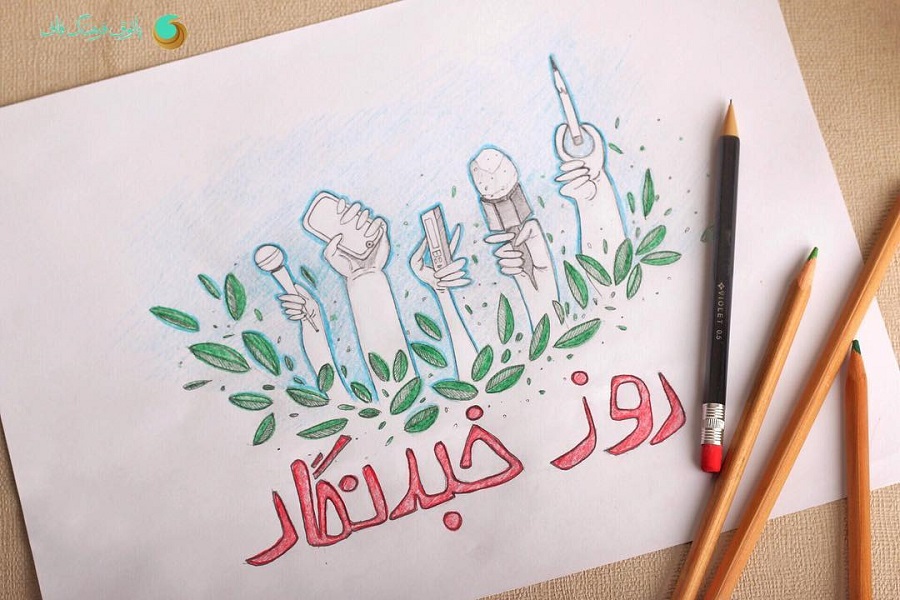 روز خبرنگار
VIOLET 0.5